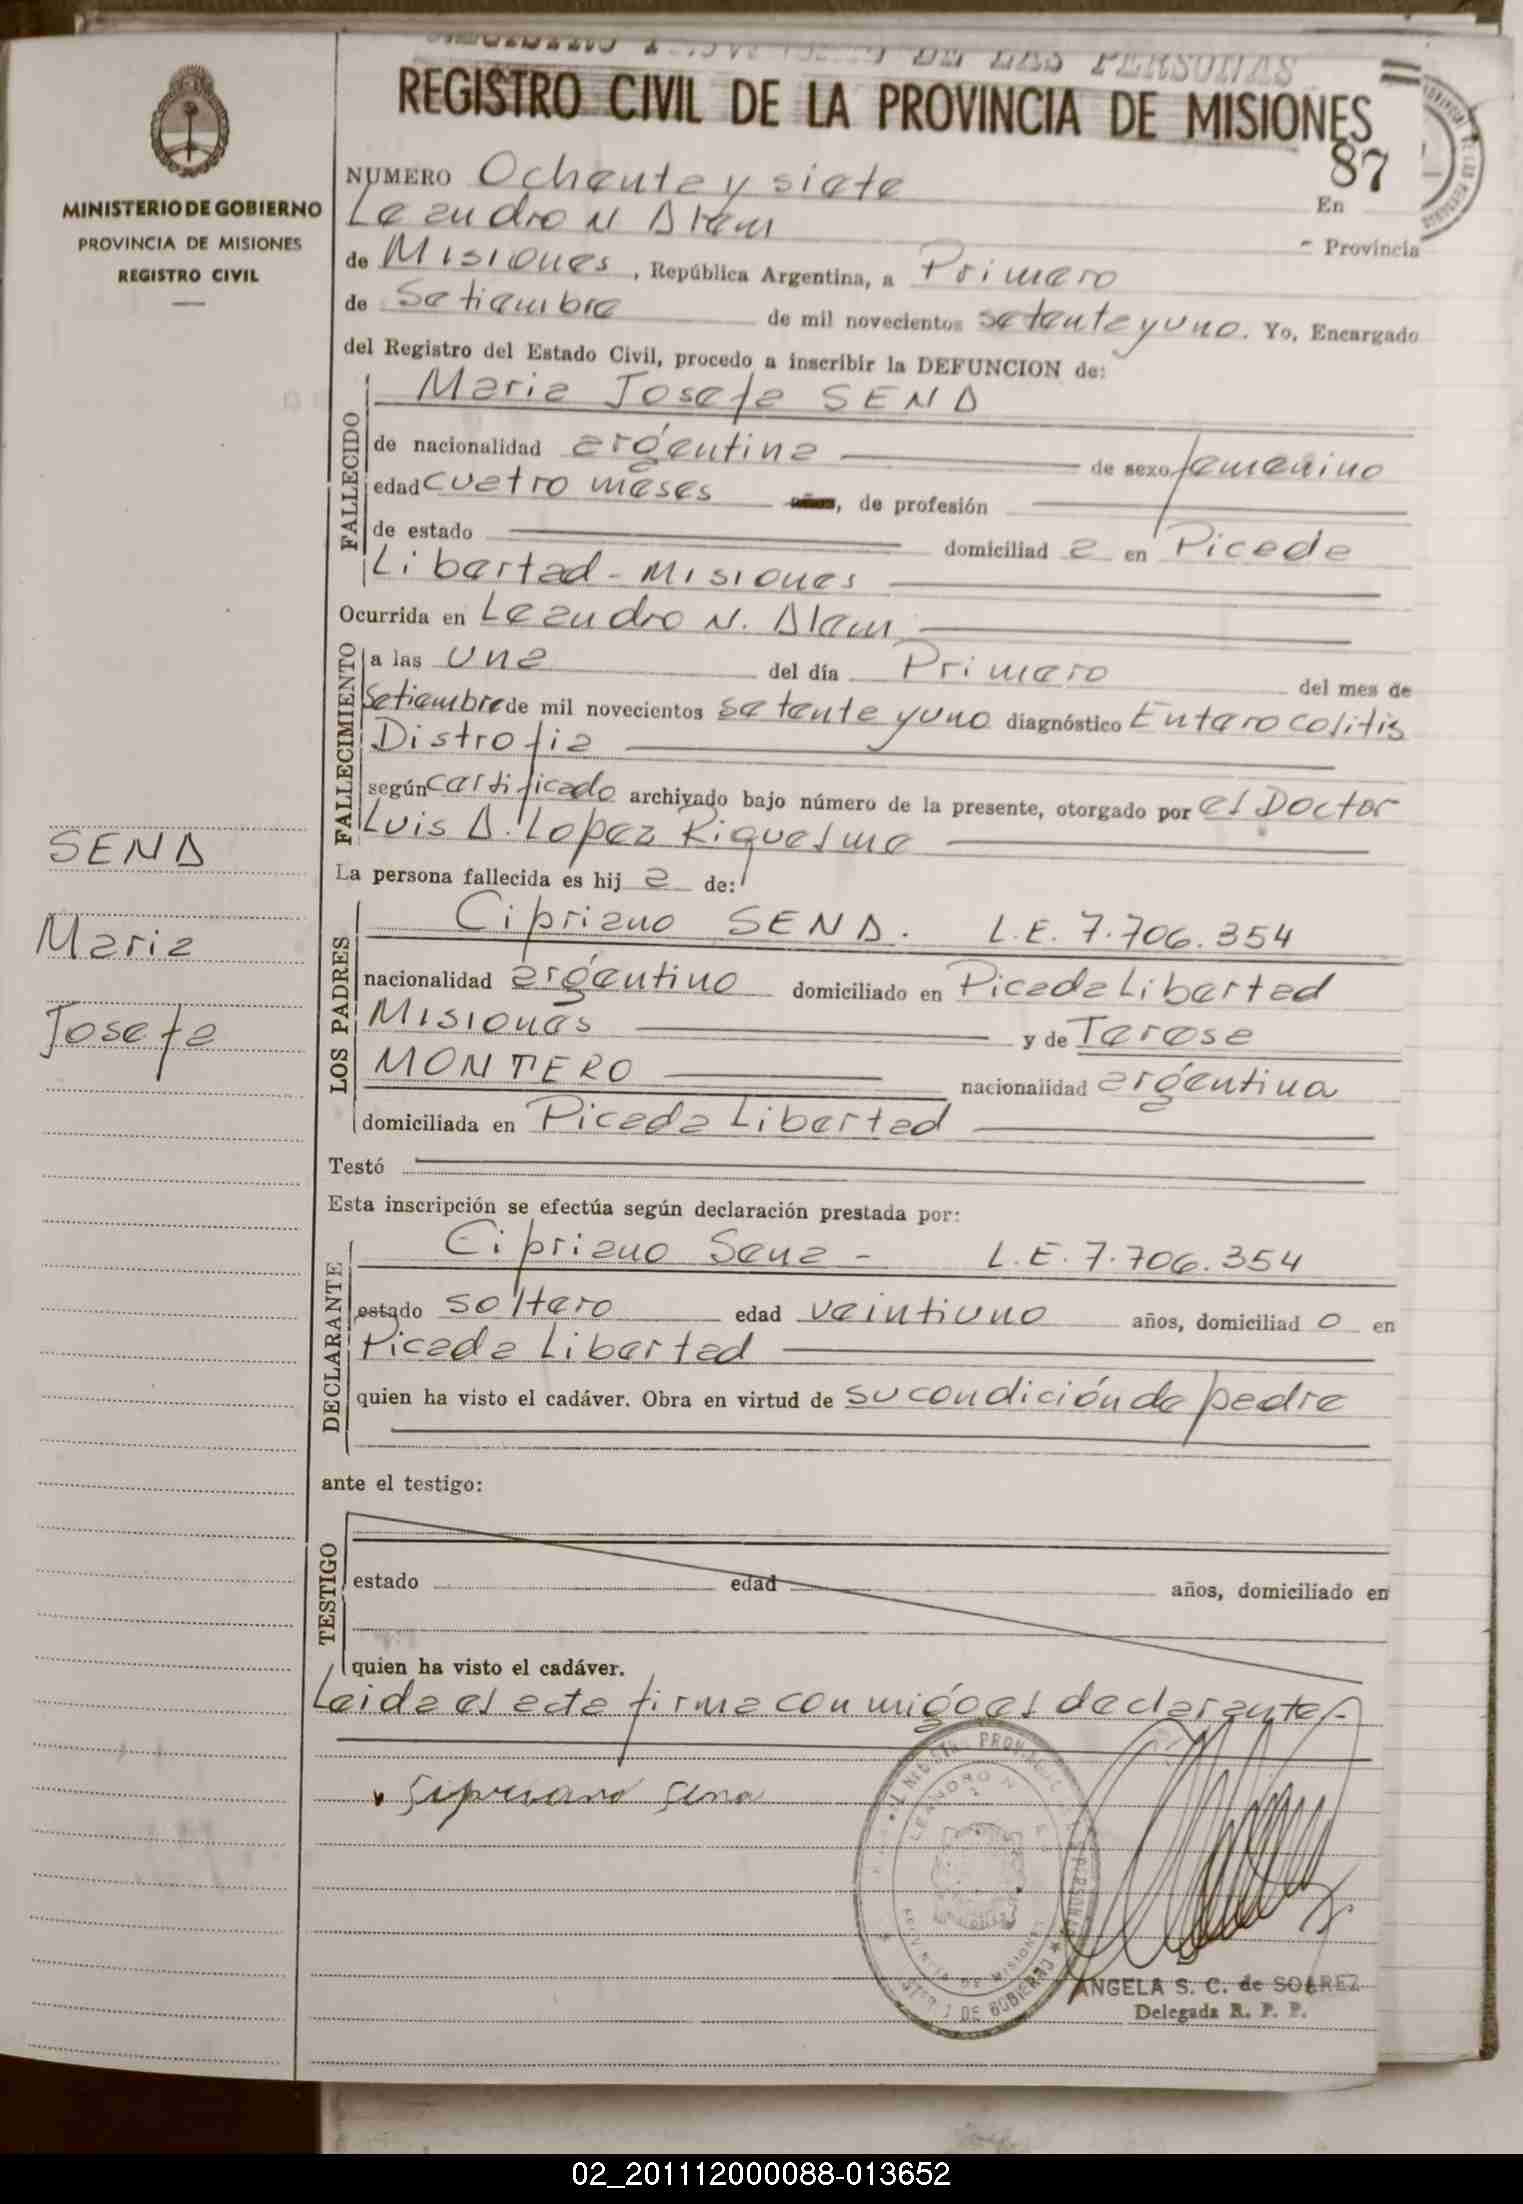 REGISTRO CIVIL DE LA PROVINCIA DE MISIONES
87
MINISTERIO DE GOBIERNO
PROVINCIA DE MISIONES
REGISTRO CIVIL
NUMERO Ochenta y siete En
Leandro N Alem - Provincia
de Misiones, República Argentina, a Primero
de Setiembre de mil novecientos setenta y uno. Yo, Encargado
del Registro del Estado Civil, procedo a inscribir la DEFUNCION de:
FALLECIDO
Maria Josefa SENA
de nacionalidad argentina de sexo femenino
edad cuatro meses años, de profesión
de estado domiciliad a en Picada
Libertad - Misiones
FALLECIMIENTO
Ocurrida en Leandro N. Alem
a las una del día Primero del mes de
Setiembre de mil novecientos setenta y uno diagnóstico Enterocolitis
Distrofia
según certificado archivado bajo número de la presente, otorgado por el Doctor
Luis A. Lopez Riquelme
SENA
Maria
Josefa
La persona fallecida es hij a de:
LOS PADRES
Cipriano SENA. L.E. 7.706.354
nacionalidad argentino domiciliado en Picada Libertad
Misiones y de Teresa
MONTERO nacionalidad argentina
domiciliada en Picada Libertad
Testó
Esta inscripción se efectúa según declaración prestada por:
DECLARANTE
Cipriano Sena - L.E. 7.706.354
estado soltero edad veintiuno años, domiciliad o en
Picada Libertad
quien ha visto el cadáver. Obra en virtud de su condición de padre
ante el testigo:
TESTIGO
estado edad años, domiciliado en
quien ha visto el cadáver.
Leida el acta firma conmigo el declarante.-
Sipriano Sena
LEANDRO N.
PROVINCIA DE MISIONES
DE GOBIERNO
ANGELA S. C. de SOAREZ
Delegada R. P. P.
02_201112000088-013652